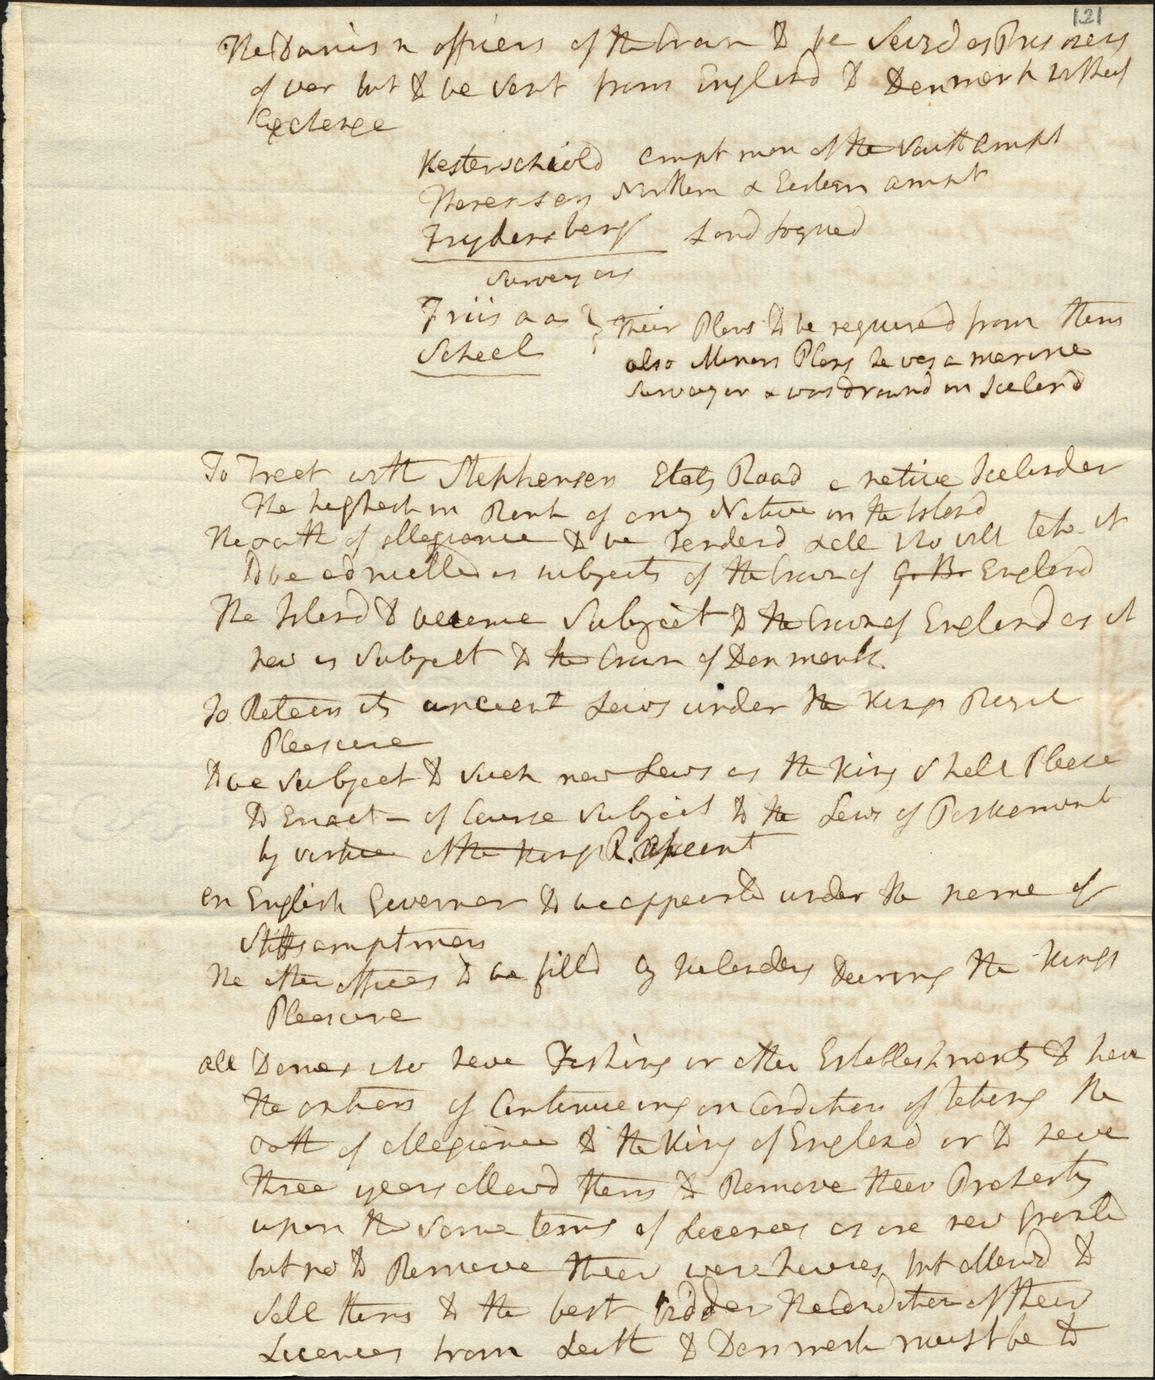 121
The Danish officers of the Crown to be Seizd as Prisoners
of war but to be sent from England to Denmark without
Exchange
Kesterschiold amptman of the South ampt
Thoransen Northern & Eastern ampt
Frydensberg Land fogued
Surveyors
Friisaa } Their Plans to be required from them
Scheel also Minors Plans he was a marine
Surveyor & was drownd in Iceland
To Treat with Stephensen Etats Raad a native Icelander
The highest in Rank of any Native in the Island
The oath of allegiance to be tenderd & all who will take it
to be admitted as subjects of the Crown of G. B. England
The Island to become Subject to the Crown of England as it
now is Subject to the Crown of Denmark.
To Retain its ancient Laws under the Kings Royal
Pleasure
To be subject to such new Laws as the King shall Please
to Enact – of Course subject to the Laws of Parliament
by virtue of the Kings R. Assent
an English Governor to be appointd under the name of
Stiftsamptman
The other offices to be filld by Icelanders During the Kings
Pleasure
all Danes who have Fishing or other Establishments to have
the option of Continueing on Condition of taking the
oath of allegiance to the King of England or to have
three years allowd them to Remove their Property
upon the same terms of Licences as are now grantd
but not to Remove their warehouses but allowd to
Sell them to the best bidder The Condition of their
Licences from Leith to Denmark must be to